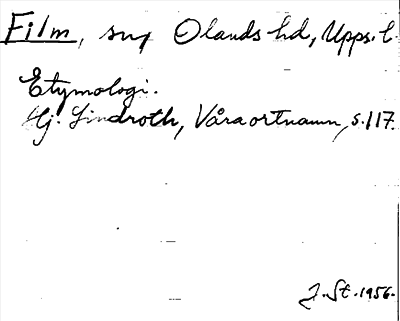 Film, sn, Olands hd, Upps. l.
Etymologi.
Hj. Lindroth, Våra ortnamn, s. 117.
J. St. 1956.